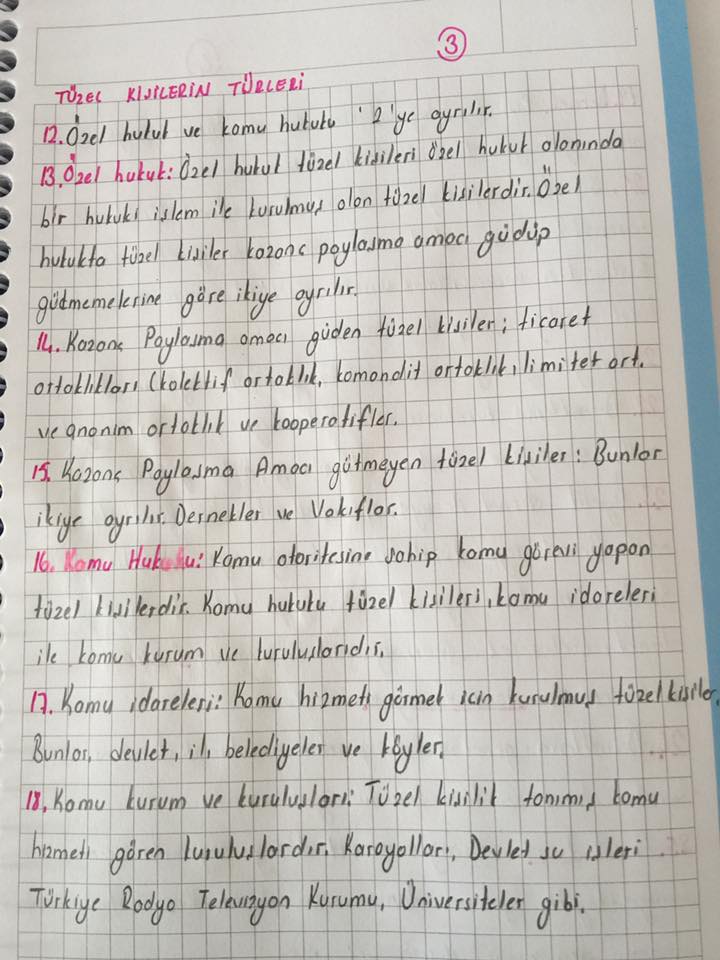 3
TÜZEL KİŞİLERİN TÜRLERİ
12. Özel hukuk ve kamu hukuku '2'ye ayrılır.
13. Özel hukuk: Özel hukuk tüzel kişileri özel hukuk alanında
bir hukuki işlem ile kurulmuş olan tüzel kişilerdir. Özel
hukukta tüzel kişiler kazanç paylaşma amacı güdüp
gütmemelerine göre ikiye ayrılır.
14. Kazanç Paylaşma amacı güden tüzel kişiler; ticaret
ortaklıkları (kolektif ortaklık, komandit ortaklık, limitet ort.
ve anonim ortaklık ve kooperatifler.
15. Kazanç Paylaşma Amacı gütmeyen tüzel kişiler: Bunlar
ikiye ayrılır. Dernekler ve Vakıflar.
16. Kamu Hukuku: Kamu otoritesine sahip kamu görevi yapan
tüzel kişilerdir. Kamu hukuku tüzel kişileri, kamu idareleri
ile kamu kurum ve kuruluşlarıdır.
17. Kamu idareleri: Kamu hizmeti görmek için kurulmuş tüzel kişiler.
Bunlar, devlet, il, belediyeler ve köyler.
18. Kamu kurum ve kuruluşları: Tüzel kişilik tanımış kamu
hizmeti gören kuruluşlardır. Karayolları, Devlet su işleri
Türkiye Radyo Televizyon Kurumu, Üniversiteler gibi.